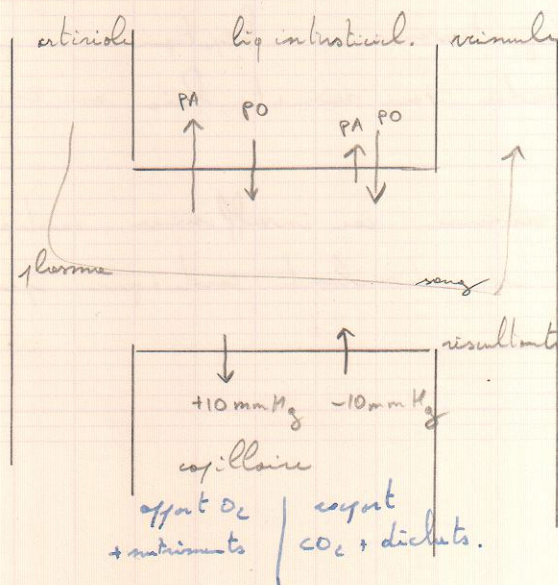 artériole liq intersticiel. veinule
PA PO PA PO
plasma sang
résultante
+10 mm Hg -10 mm Hg
capillaire
apport O2 export
+ nutriments CO2 + déchets.